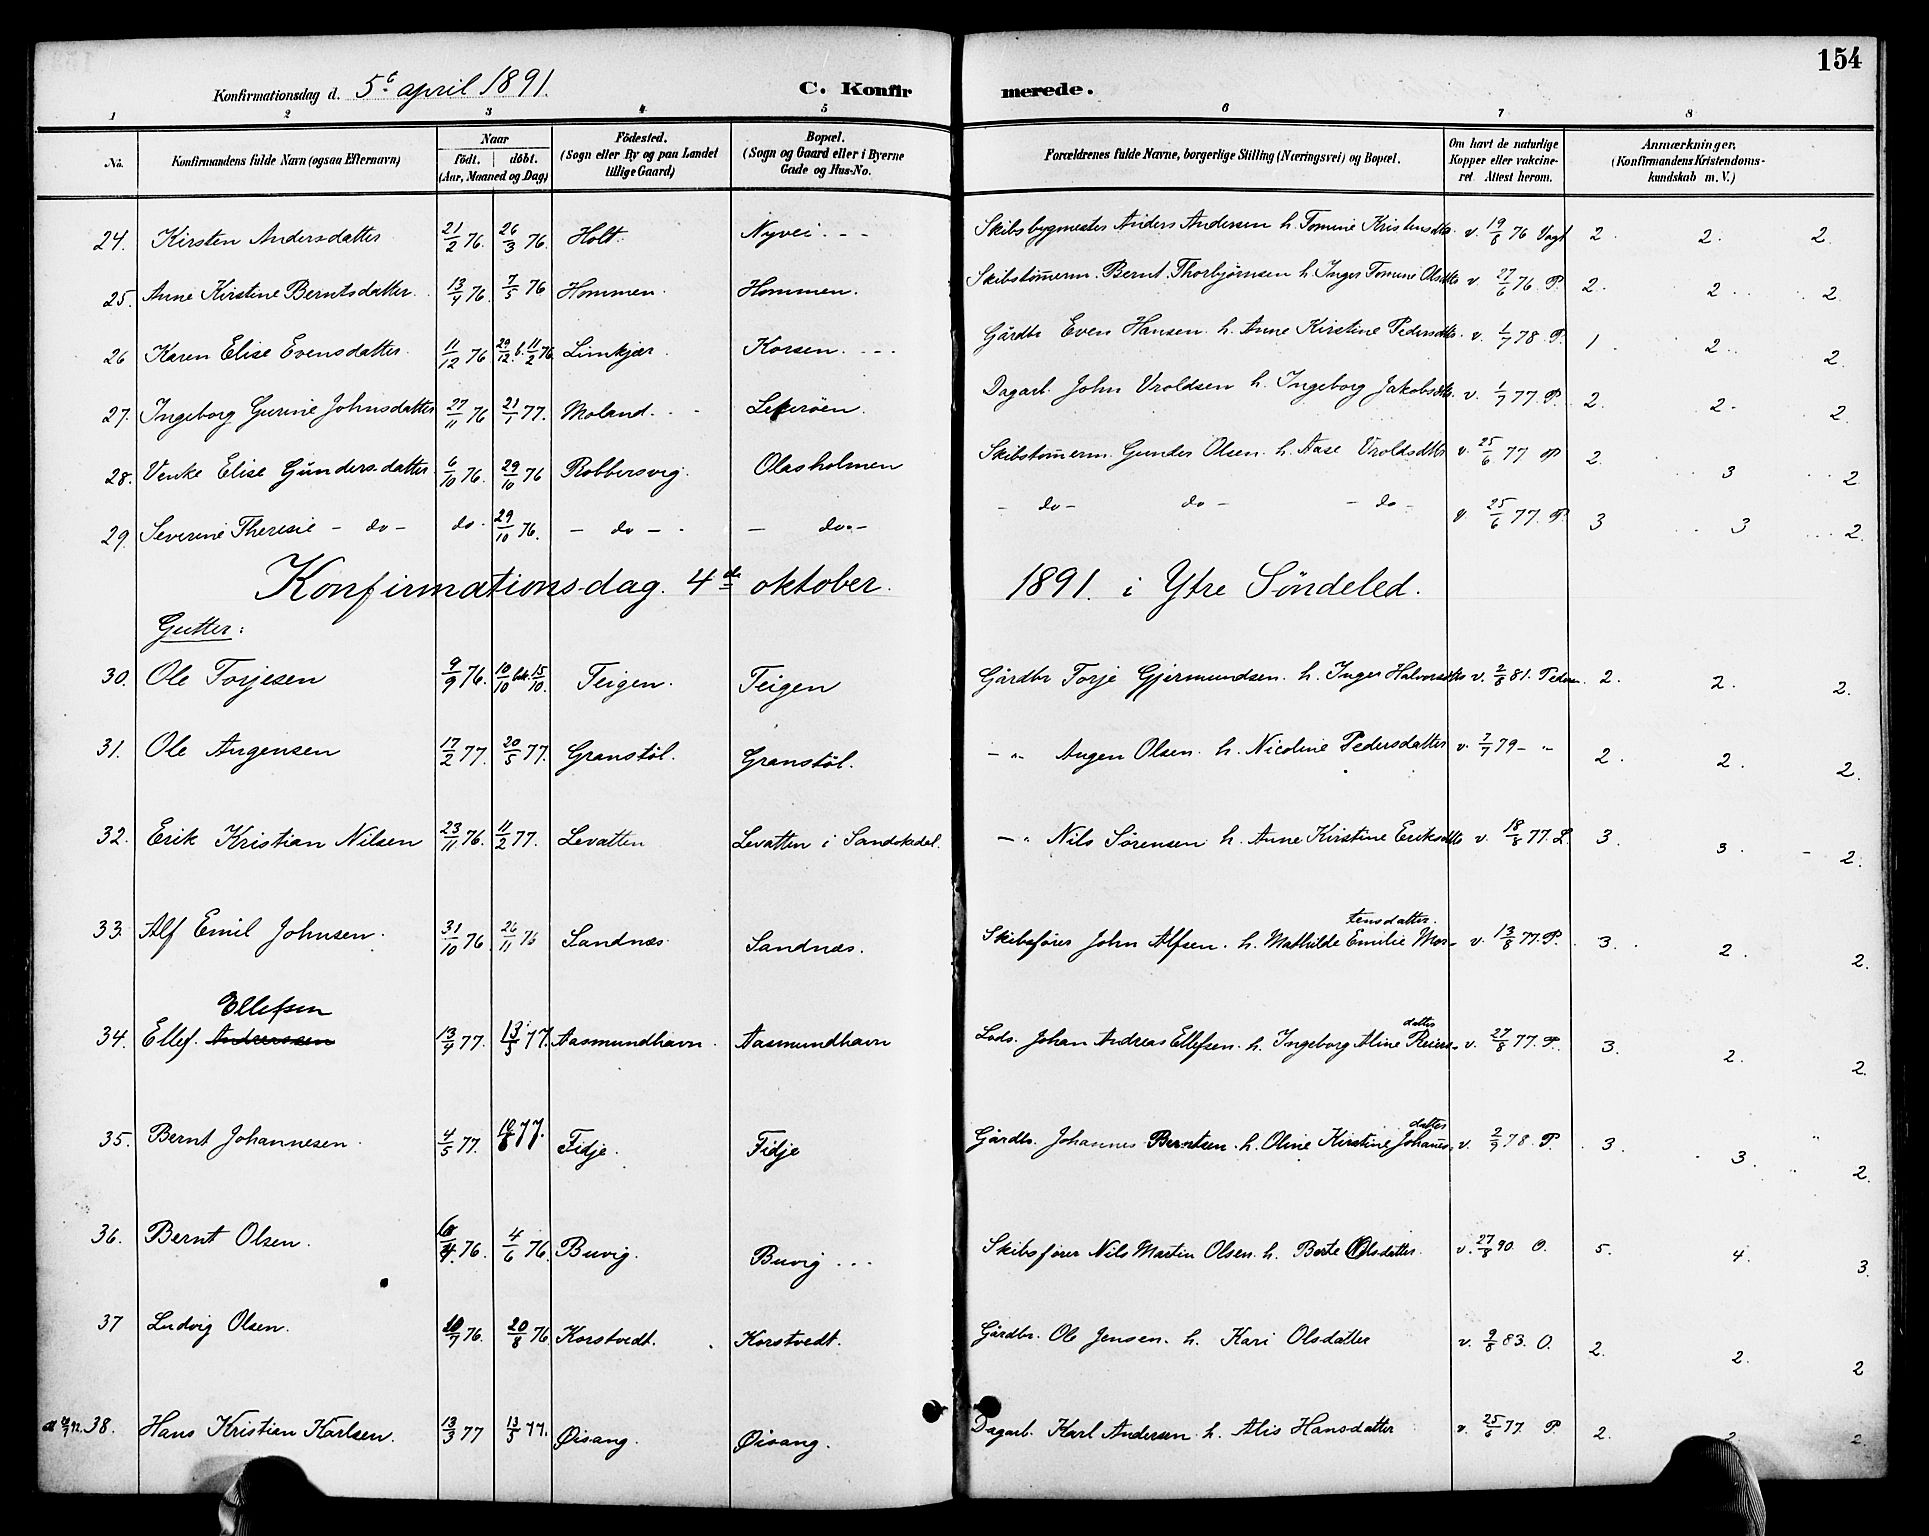 154
Konfirmationsdag d. 5te april 1891. C. Konfirmerede.
1 2 3 4 5 6 7 8
No. Konfirmandens fulde Navn (ogsaa Efternavn) Naar födt. döbt. (Aar, Maaned og Dag) Födested. (Sogn eller By og paa Landet tillige Gaard) Bopæl. (Sogn og Gaard eller i Byerne Gade og Hus-No. Forældrenes fulde Navne, borgerlige Stilling (Næringsvei) og Bopæl. Om havt de naturlige Kopper eller vakcineret. Attest herom. Anmærkninger, (Konfirmandens Kristendomskundskab m. V.)
24. Kirsten Andersdatter 21/2 76. 26/3 76. Holt. Nyvei. Skibsbygmester Anders Andersen h. Tomine Kristensdtr. v. 19/8 76 Vogt 2. 2. 2.
25. Anne Kirstine Berntsdatter. 13/4 76. 7/5 76 Hommen. Hommen. Skibstömerm. Bernt Thorbjørnsen h. Inger Tomine Olsdtr v. 27/6 76 P. 2. 2. 2.
26 Karen Elise Evensdatter. 11/12 76 29/12 b. 11/2 76. Limkjær. Korsen. Gårdbr Even Hansen h. Anne Kirstine Pedersdtr. v. 1/7 78 P. 1. 2. 2.
27. Ingeborg Gurine Johnsdatter 27/11 76 21/1 77. Moland. Lekerøen. Dagarb. John Vroldsen h. Ingeborg Jakobsdtr. v. 1/7 77. P. 2. 2. 2.
28. Venke Elise Gundersdatter 6/10 76. 29/10 76 Robbersvig. Olasholmen Skibstömerm. Gunder Olsen. h. Aase Vroldsdtr v. 25/6 77 P 2. 3 2.
29. Severine Theresie - do - do. 29/10 76. - do - - do. - - do - do - do - v. 25/6 77. P. 3 3 2.
Konfirmationsdag. 4de oktober. 1891. i Ytre Söndeled.
Gutter:
30. Ole Torjesen 9/9 76. 10/10 bek. 15/10. Teigen. Teigen Gårdbr Torje Gjermundsen. h. Inger Halvorsdtr v. 2/8 81. Peder 2. 2. 2.
31. Ole Augensen 17/2 77. 20/5 77. Granstöl. Granstöl. - " Augen Olsen. h. Nicoline Pedersdatter v. 2/7 79 - " 2. 2. 2.
32. Erik Kristian Nilsen 23/11 76. 11/2 77. Levatten Levatten i Sandskedal. - " Nils Sörensen h. Anne Kirstine Eriksdtr v. 18/8 77. L. 3. 3. 2.
33. Alf Emil Johnsen. 31/10 76 26/11 76 Sandnæs. Sandnæs. Skibsfører John Alfsen. h. Mathilde Emilie Mortensdatter. v. 13/8 77. P. 3. 2. 2.
Ellefsen
34. Ellef. Andreassen 13/4 77. 13/5 77. Aasmundhavn. Aasmundhavn Lods. Johan Andreas Ellefsen. h. Ingeborg Aline Reiersdatter v. 27/8 77. P. 3. 2. 2.
35. Bernt Johannesen. 4/5 77. 10/6 77. Fidje. Fidje Gårdbr. Johannes Berntsen. h. Oline Kirstine Johansdatter v. 2/7 78. P. 3. 3. 2.
36. Bernt Olsen. 6/4 76. 4/6 76. Buvig. Buvig Skibsfører Nils Martin Olsen. h. Berte Olsdatter. v. 27/8 90. O. 5. 4. 3.
37 Ludvig Olsen. 10/7 76. 20/8 76. Korstvedt. Korstvedt. Gårdbr. Ole Jensen. h. Kari Olsdatter v. 9/8 83. O. 2. 2. 2
38. Hans Kristian Karlsen. 13/3 77 13/5 77. Øisang. Øisang. Dagarb. Karl Andersen. h. Alis Hansdatter v. 25/6 77. P. 2. 2. 2.